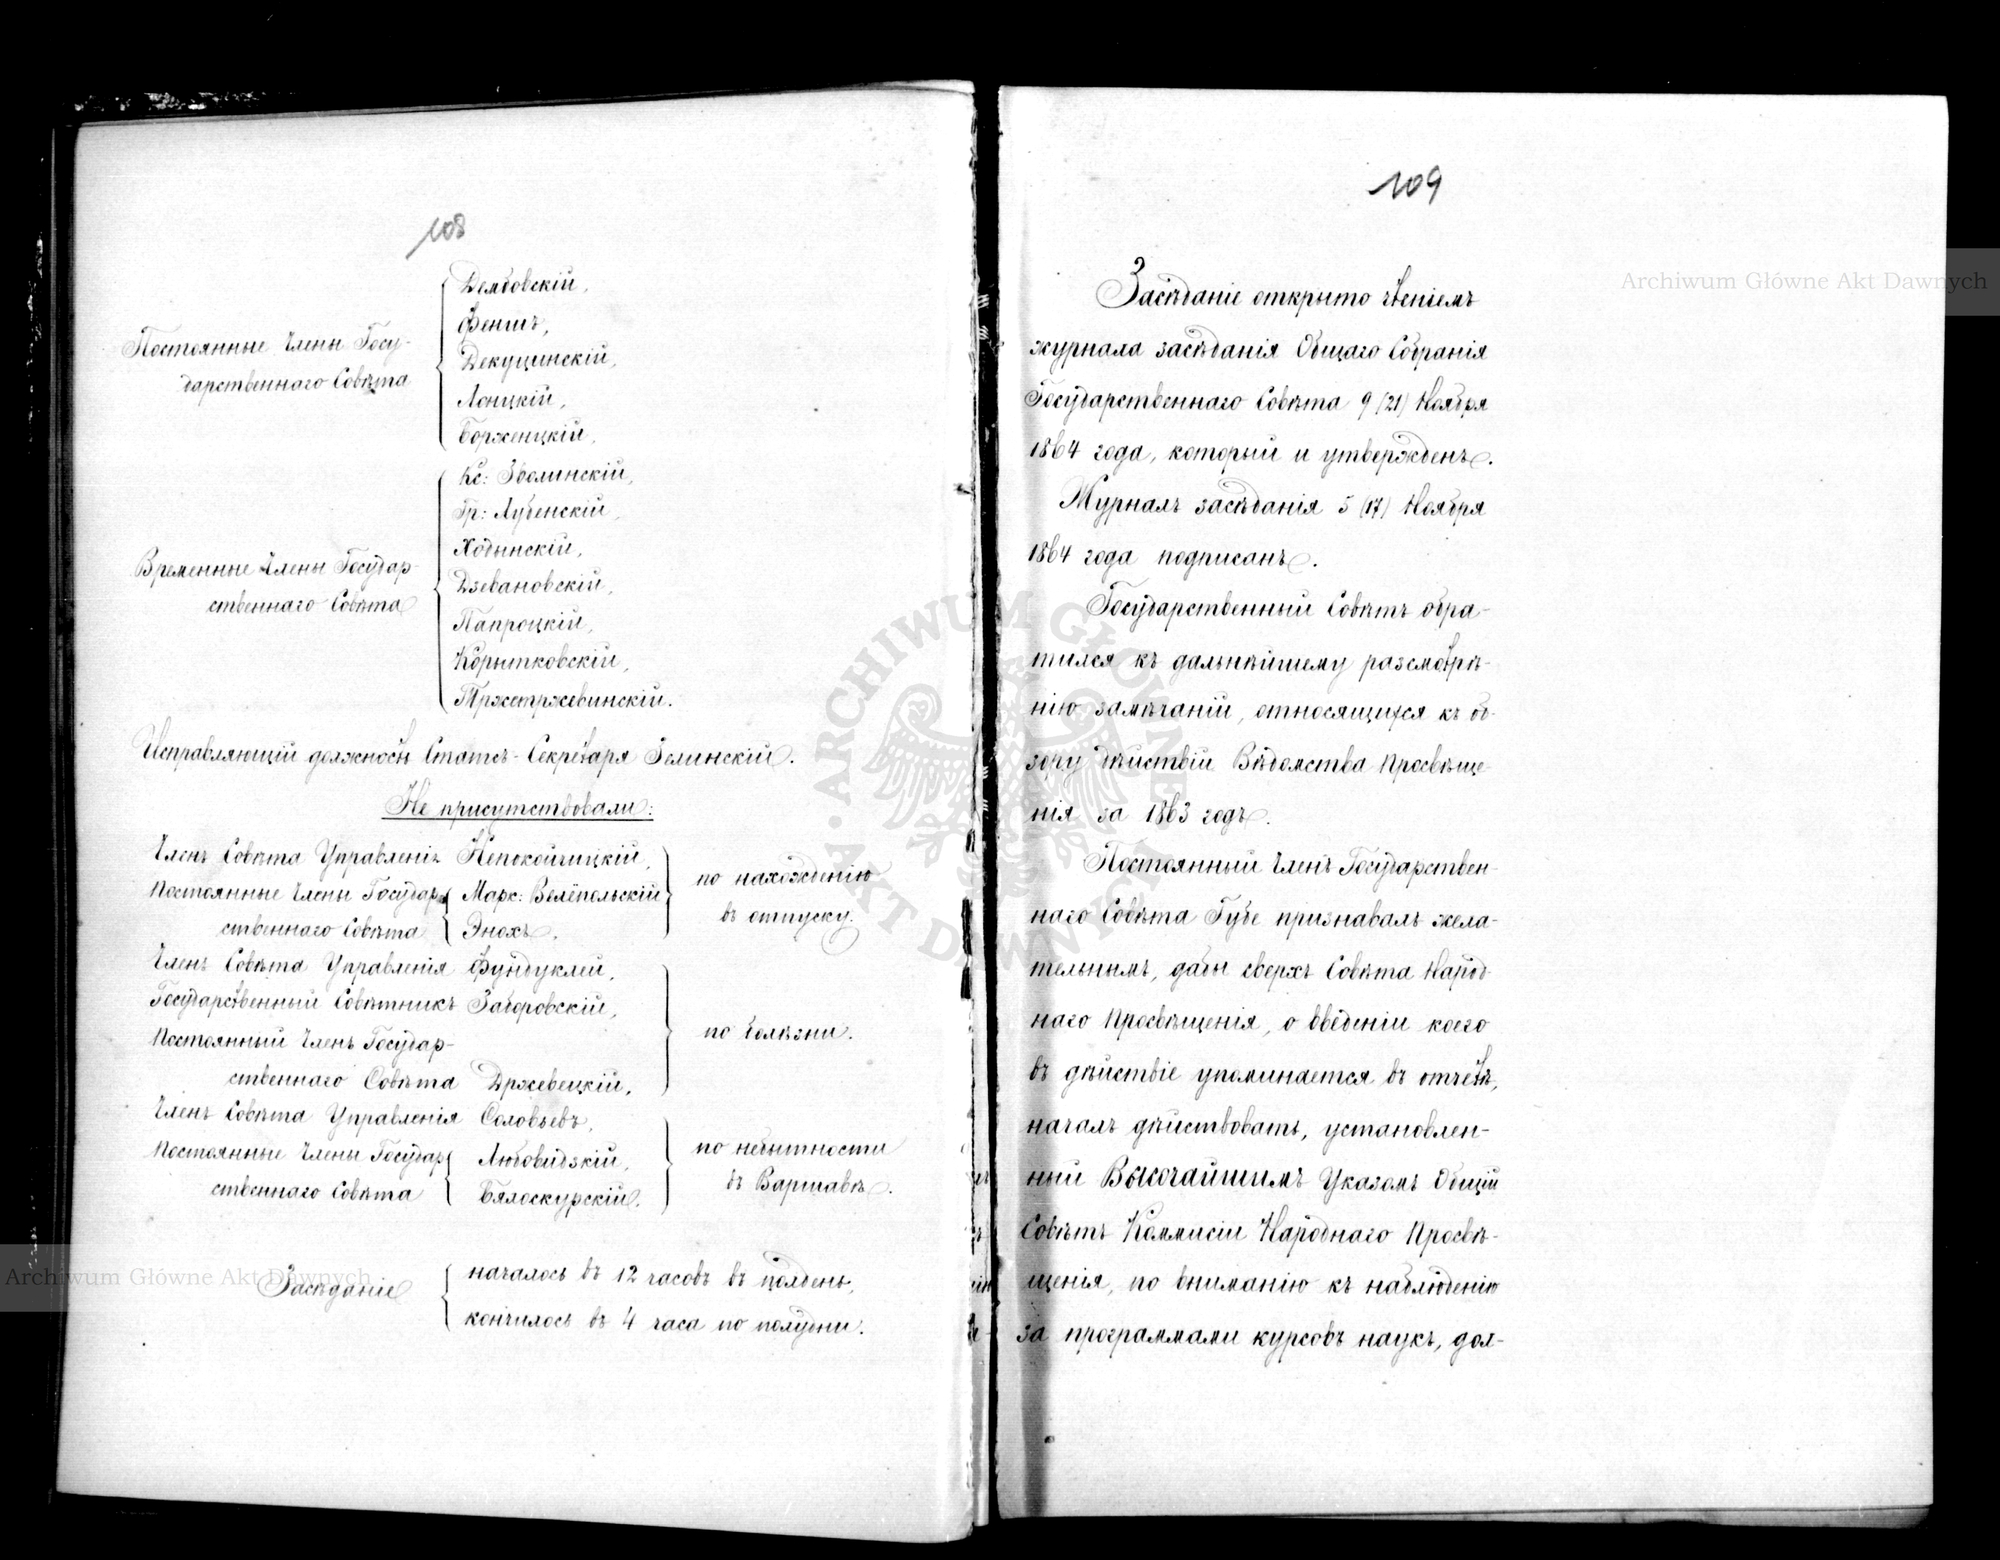 108
Постоянные Члены Госу-
дарственнаго Совѣта
Дембовскій,
Феншъ,
Декуцинскій,
Лонцкій,
Борженцкій,
Временные Члены Государ-
ственнаго Совѣта
Кс: Зволинскій,
Гр: Лубенскій,
Ходынскій,
Дзевановскій,
Папроцкій,
Корытковскій,
Тржетржевинскій.
Исправляющій должность Статсъ-Секретаря Зелинскій.
Не присутствовали:
Членъ Совѣта Управленія Непокойчицкій,
Постоянные Члены Государ-
ственнаго Совѣта
Марк: Велёпольскій
Энохъ.
по нахожденію
въ отпуску.
Членъ Совѣта Управленія Фундуклей,
Государственный Совѣтникъ Заборовскій,
Постоянный Членъ Государ-
ственнаго Совѣта Држевецкій,
по болѣзни.
Членъ Совѣта Управленія Соловьевъ,
Постоянные Члены Государ-
ственнаго Совѣта
Любовидзкій,
Бялоскурскій.
по небытности
въ Варшавѣ.
Засѣданіе
началось въ 12 часовъ въ полдень,
кончилось въ 4 часа по полудни.
109
Засѣданіе открыто чтеніемъ
журнала засѣданія Общаго Собранія
Государственнаго Совѣта 9 (21) Ноября
1864 года, который и утвержденъ.
Журналъ засѣданія 5 (17) Ноября
1864 года подписанъ.
Государственный Совѣтъ обра-
тился къ дальнѣйшему разсмотрѣ-
нію замѣчаній, относящихся къ об-
зору дѣйствій Вѣдомства Просвѣще-
нія за 1863 годъ.
Постоянный Членъ Государствен-
наго Совѣта Губе признавалъ жела-
тельнымъ, дабы сверхъ Совѣта Народ-
наго Просвѣщенія, о введеніи коего
въ дѣйствіе упоминается въ отчетѣ,
началъ дѣйствовать, установлен-
ный Высочайшимъ Указомъ Общій
Совѣтъ Коммисіи Народнаго Просвѣ-
щенія, по вниманію къ наблюденію
за программами курсовъ наукъ, дол-
Archiwum Główne Akt Dawnych
Archiwum Główne Akt Dawnych
ARCHIWUM GŁÓWNE · AKT DAWNYCH ·